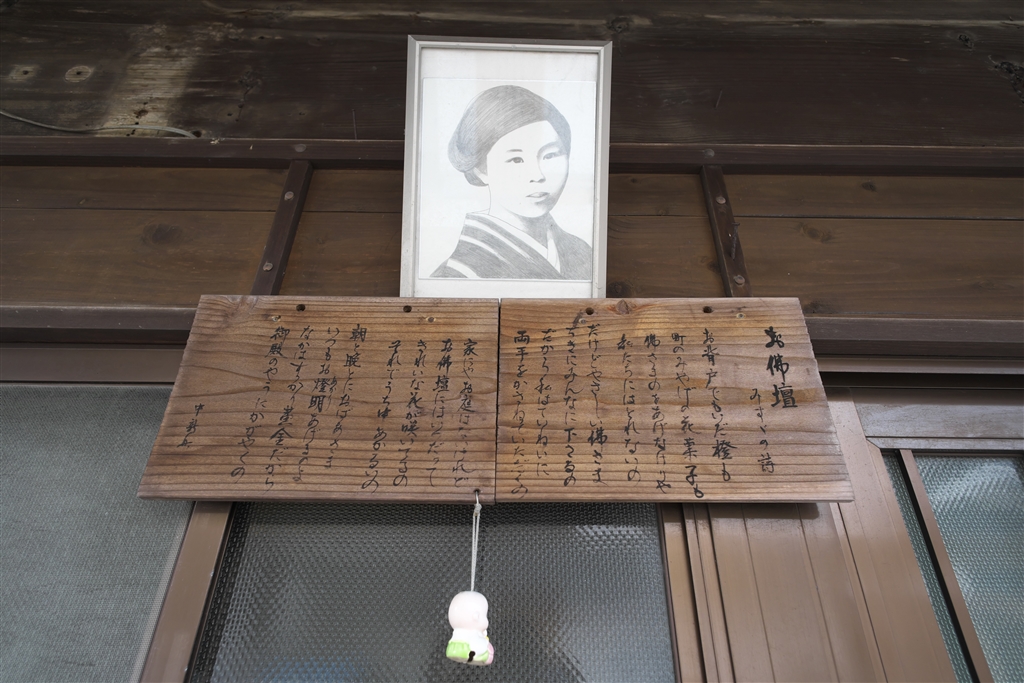 お佛壇
みすゞの詩
お背戸でもいだ橙も
町のみやげの花菓子も
佛さまのをあげなけりや
私たちにはとれないの
だけどやさしい佛さま
ぢきにみんなに下さるの
だから私はていねいに
両手をかさねていただくの
家にやお庭はないけれど
お佛壇にはいつだって
きれいな花が咲いてるの
それでうち中あかるいの
朝と晩とにおばあさま
いつもお燈明あげるのよ
なかはすっかり黄金だから
御殿のやうにかがやくの